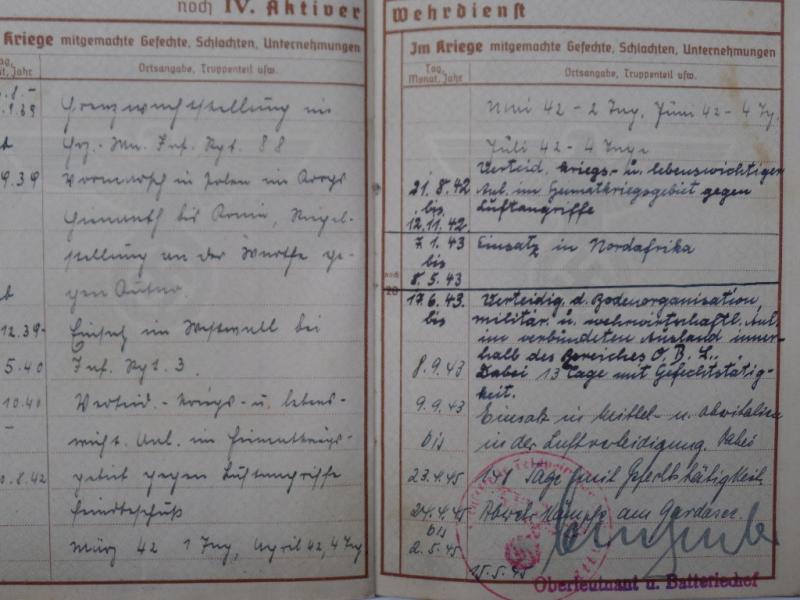 noch IV. Aktiver
Kriege mitgemachte Gefechte, Schlachten, Unternehmungen
Ortsangabe, Truppenteil usw.
Grenzwachtstellung im
Inf. Rgt. 88
9.39 Vormarsch in Polen im Korps
bis Konin, Riegel-
stellung an der Warthe ge-
gen
12.39- Einsatz im Westwall bei
5.40 Inf. Rgt. 3.
10.40 Verteid. - kriegs - u. lebens-
wicht. Anl. im Heimatkriegs-
8.42 gebiet gegen Luftangriffe
März 42 1 Tag, April 42, 4 Tg
Wehrdienst
Im Kriege mitgemachte Gefechte, Schlachten, Unternehmungen
Tag, Monat, Jahr
Ortsangabe, Truppenteil usw.
Mai 42 - 2 Tag. Juni 42 - 4 Tg.
Juli 42 - 4 Tage
Verteid. kriegs- u. lebenswichtiger
21.8.42 Anl. im Heimatkriegsgebiet gegen
bis Luftangriffe
12.11.42
7.1.43 Einsatz in Nordafrika
bis
8.5.43
17.6.43. Verteidig. d. Bodenorganisation,
bis militär. u. wehrwirtschaftl. Anl.
im verbündeten Ausland inner-
halb des Bereiches O.B.L.
8.9.43 Dabei 13 Tage mit Gefechtstätig-
keit.
9.9.43 Einsatz in Mittel- u. Oberitalien
bis in der Luftverteidigung. Dabei
23.4.45 141 Tage mit Gefechtstätigkeit
24.4.45 Abwehrkämpfe am Gardasee.
bis
2.5.45
15.5.45
Oberleutnant u. Batteriechef